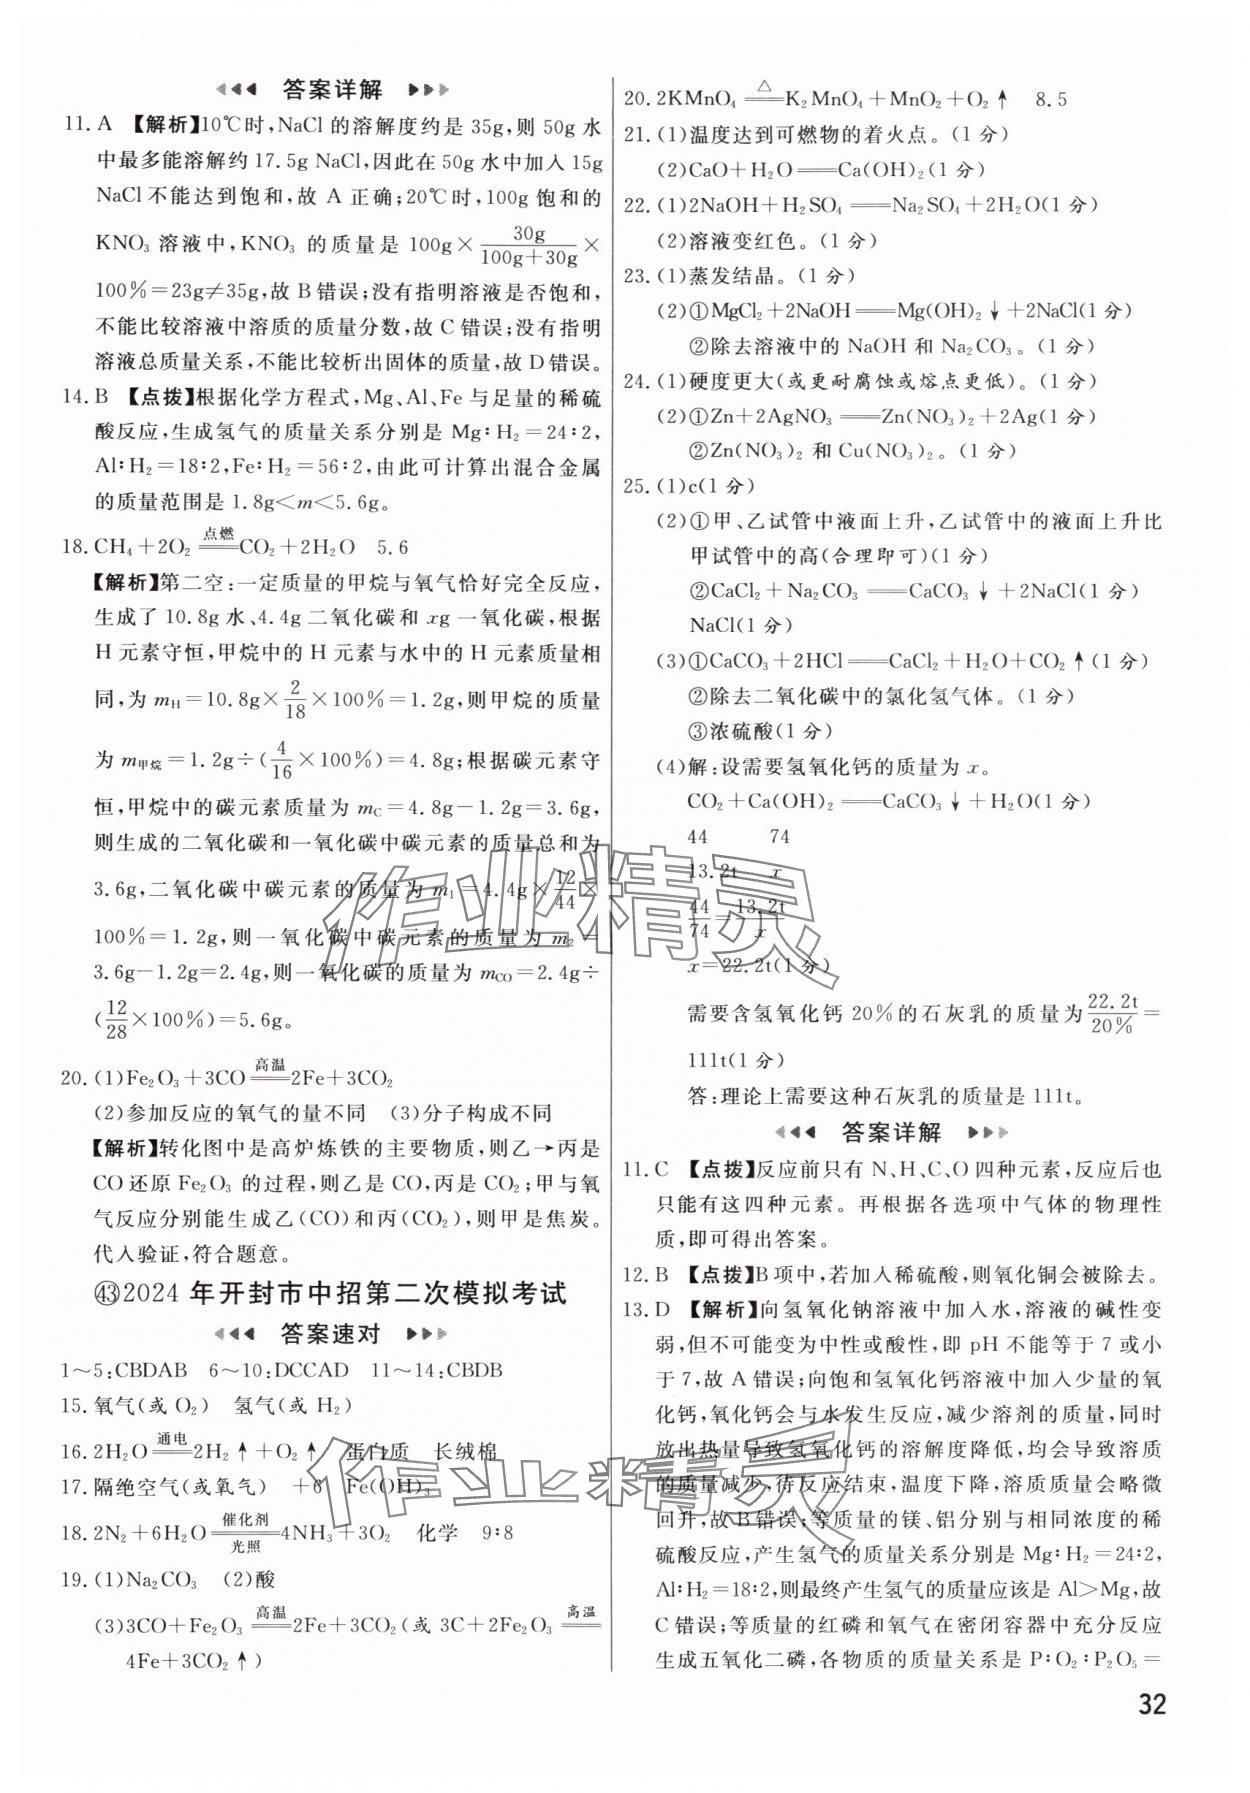 答案详解
11. A 【解析】10℃时,NaCl 的溶解度约是 35g,则 50g 水
中最多能溶解约 17.5g NaCl,因此在 50g 水中加入 15g
NaCl 不能达到饱和,故 A 正确;20℃时,100g 饱和的
KNO₃ 溶液中,KNO₃ 的质量是 100g×30g/(100g+30g)×
100%=23g≠35g,故 B 错误;没有指明溶液是否饱和,
不能比较溶液中溶质的质量分数,故 C 错误;没有指明
溶液总质量关系,不能比较析出固体的质量,故 D 错误。
14. B 【点拨】根据化学方程式,Mg、Al、Fe 与足量的稀硫
酸反应,生成氢气的质量关系分别是 Mg∶H₂=24∶2,
Al∶H₂=18∶2,Fe∶H₂=56∶2,由此可计算出混合金属
的质量范围是 1.8g<m<5.6g。
18. CH₄+2O₂ =点燃= CO₂+2H₂O 5.6
【解析】第二空:一定质量的甲烷与氧气恰好完全反应,
生成了 10.8g 水、4.4g 二氧化碳和 xg 一氧化碳,根据
H 元素守恒,甲烷中的 H 元素与水中的 H 元素质量相
同,为 m_H=10.8g×2/18×100%=1.2g,则甲烷的质量
为 m_甲烷=1.2g÷(4/16×100%)=4.8g;根据碳元素守
恒,甲烷中的碳元素质量为 m_C=4.8g-1.2g=3.6g,
则生成的二氧化碳和一氧化碳中碳元素的质量总和为
3.6g,二氧化碳中碳元素的质量为 m₁=4.4g×12/44×
100%=1.2g,则一氧化碳中碳元素的质量为 m₂=
3.6g-1.2g=2.4g,则一氧化碳的质量为 m_CO=2.4g÷
(12/28×100%)=5.6g。
20. (1)Fe₂O₃+3CO =高温= 2Fe+3CO₂
(2)参加反应的氧气的量不同 (3)分子构成不同
【解析】转化图中是高炉炼铁的主要物质,则乙→丙是
CO 还原 Fe₂O₃ 的过程,则乙是 CO,丙是 CO₂;甲与氧
气反应分别能生成乙(CO)和丙(CO₂),则甲是焦炭。
代入验证,符合题意。
㊸2024 年开封市中招第二次模拟考试
答案速对
1～5:CBDAB 6～10:DCCAD 11～14:CBDB
15. 氧气(或 O₂) 氢气(或 H₂)
16. 2H₂O =通电= 2H₂↑+O₂↑ 蛋白质 长绒棉
17. 隔绝空气(或氧气) +6 Fe(OH)₃
18. 2N₂+6H₂O =催化剂/光照= 4NH₃+3O₂ 化学 9∶8
19. (1)Na₂CO₃ (2)酸
(3)3CO+Fe₂O₃ =高温= 2Fe+3CO₂(或 3C+2Fe₂O₃ =高温=
4Fe+3CO₂↑)
20. 2KMnO₄ =△= K₂MnO₄+MnO₂+O₂↑ 8.5
21. (1)温度达到可燃物的着火点。(1 分)
(2)CaO+H₂O══Ca(OH)₂(1 分)
22. (1)2NaOH+H₂SO₄══Na₂SO₄+2H₂O(1 分)
(2)溶液变红色。(1 分)
23. (1)蒸发结晶。(1 分)
(2)①MgCl₂+2NaOH══Mg(OH)₂↓+2NaCl(1 分)
②除去溶液中的 NaOH 和 Na₂CO₃。(1 分)
24. (1)硬度更大(或更耐腐蚀或熔点更低)。(1 分)
(2)①Zn+2AgNO₃══Zn(NO₃)₂+2Ag(1 分)
②Zn(NO₃)₂ 和 Cu(NO₃)₂。(1 分)
25. (1)c(1 分)
(2)①甲、乙试管中液面上升,乙试管中的液面上升比
甲试管中的高(合理即可)(1 分)
②CaCl₂+Na₂CO₃══CaCO₃↓+2NaCl(1 分)
NaCl(1 分)
(3)①CaCO₃+2HCl══CaCl₂+H₂O+CO₂↑(1 分)
②除去二氧化碳中的氯化氢气体。(1 分)
③浓硫酸(1 分)
(4)解:设需要氢氧化钙的质量为 x。
CO₂+Ca(OH)₂══CaCO₃↓+H₂O(1 分)
44 74
13.2t x
44/74=13.2t/x
x=22.2t(1 分)
需要含氢氧化钙 20%的石灰乳的质量为22.2t/20%=
111t(1 分)
答:理论上需要这种石灰乳的质量是 111t。
答案详解
11. C 【点拨】反应前只有 N、H、C、O 四种元素,反应后也
只能有这四种元素。再根据各选项中气体的物理性
质,即可得出答案。
12. B 【点拨】B项中,若加入稀硫酸,则氧化铜会被除去。
13. D 【解析】向氢氧化钠溶液中加入水,溶液的碱性变
弱,但不可能变为中性或酸性,即 pH 不能等于 7 或小
于7,故 A 错误;向饱和氢氧化钙溶液中加入少量的氧
化钙,氧化钙会与水发生反应,减少溶剂的质量,同时
放出热量导致氢氧化钙的溶解度降低,均会导致溶质
的质量减少,待反应结束,温度下降,溶质质量会略微
回升,故 B 错误;等质量的镁、铝分别与相同浓度的稀
硫酸反应,产生氢气的质量关系分别是 Mg∶H₂=24∶2,
Al∶H₂=18∶2,则最终产生氢气的质量应该是 Al>Mg,故
C 错误;等质量的红磷和氧气在密闭容器中充分反应
生成五氧化二磷,各物质的质量关系是 P∶O₂∶P₂O₅=
32
作业精灵
作业精灵